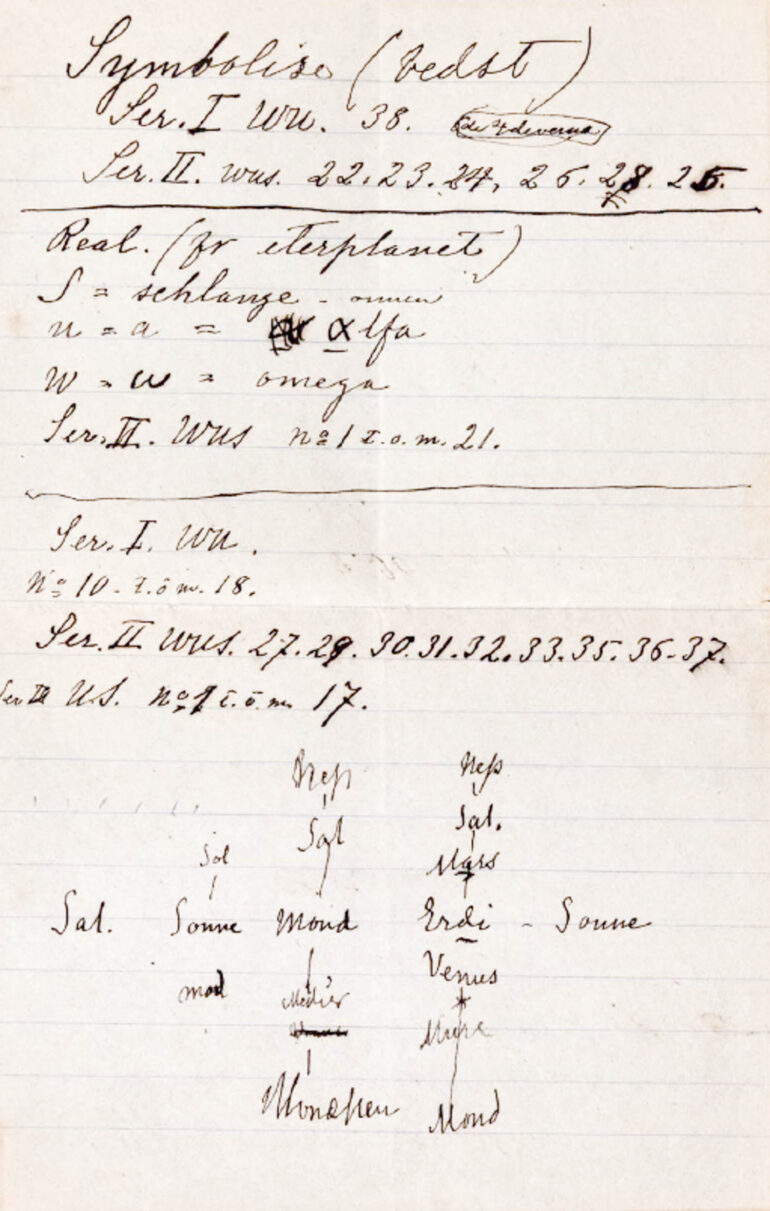 Symbolise (bedst)
Ser. I WU. 38.
Ser. II. WUS. 22. 23. 24, 26. 28. 25.
Real. (fr eterplanet)
S = schlange -
u = a = alfa
W = ω = omega
Ser. II. WUS nº 1 t.o.m. 21.
Ser. I. WU.
Nº 10 - t.o.m. 18.
Ser. II WUS. 27. 29. 30. 31. 32. 33. 35. 36 - 37.
Ser III US. nº 1 t.o.m. 17.
Nep Nep
Sat Sat.
Sol Mars
Sat. Sonne Mond Erdi - Sonne
Venus
Mond